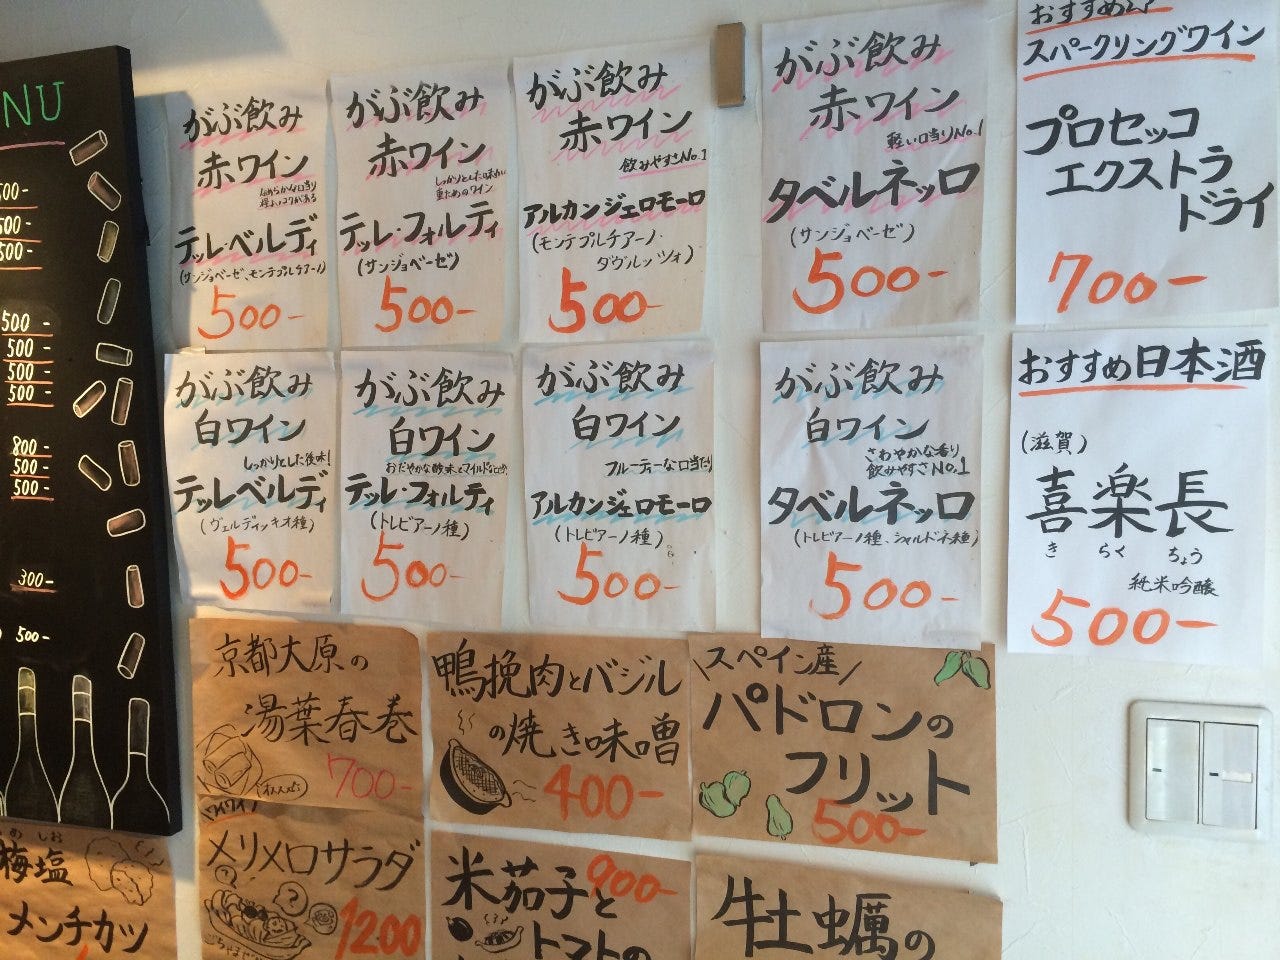 NU
500-
500-
500-
500-
500-
500-
500-
800-
500-
500-
300-
500-
がぶ飲み
赤ワイン
なめらかな口当り
程よいコクがある
テッレ・ベルディ
(サンジョベーゼ、モンテプルチアーノ)
500-
がぶ飲み
赤ワイン
しっかりとした味わい
重ためのワイン
テッレ・フォルティ
(サンジョベーゼ)
500-
がぶ飲み
赤ワイン
飲みやすさNo.1
アルカンジェロモーロ
(モンテプルチアーノ・
ダヴルッツォ)
500-
がぶ飲み
赤ワイン
軽い口当りNo.1
タベルネッロ
(サンジョベーゼ)
500-
おすすめ
スパークリングワイン
プロセッコ
エクストラ
ドライ
700-
がぶ飲み
白ワイン
しっかりとした後味!
テッレベルディ
(ヴェルディッキオ種)
500-
がぶ飲み
白ワイン
おだやかな酸味とマイルドな
テッレ・フォルティ
(トレビアーノ種)
500-
がぶ飲み
白ワイン
フルーティーな口当たり
アルカンジェロモーロ
(トレビアーノ種)
500-
がぶ飲み
白ワイン
さわやかな香り
飲みやすさNo.1
タベルネッロ
(トレビアーノ種、シャルドネ種)
500-
おすすめ日本酒
(滋賀)
喜楽長
き らく ちょう
純米吟醸
500-
京都大原の
湯葉春巻
700-
鴨挽肉とバジル
の焼き味噌
400-
スペイン産
パドロンの
フリット
500-
うめ しお
梅塩
メンチカツ
ワイワイ
メリメロサラダ
1200
米茄子と
900-
トマトの
牡蠣の